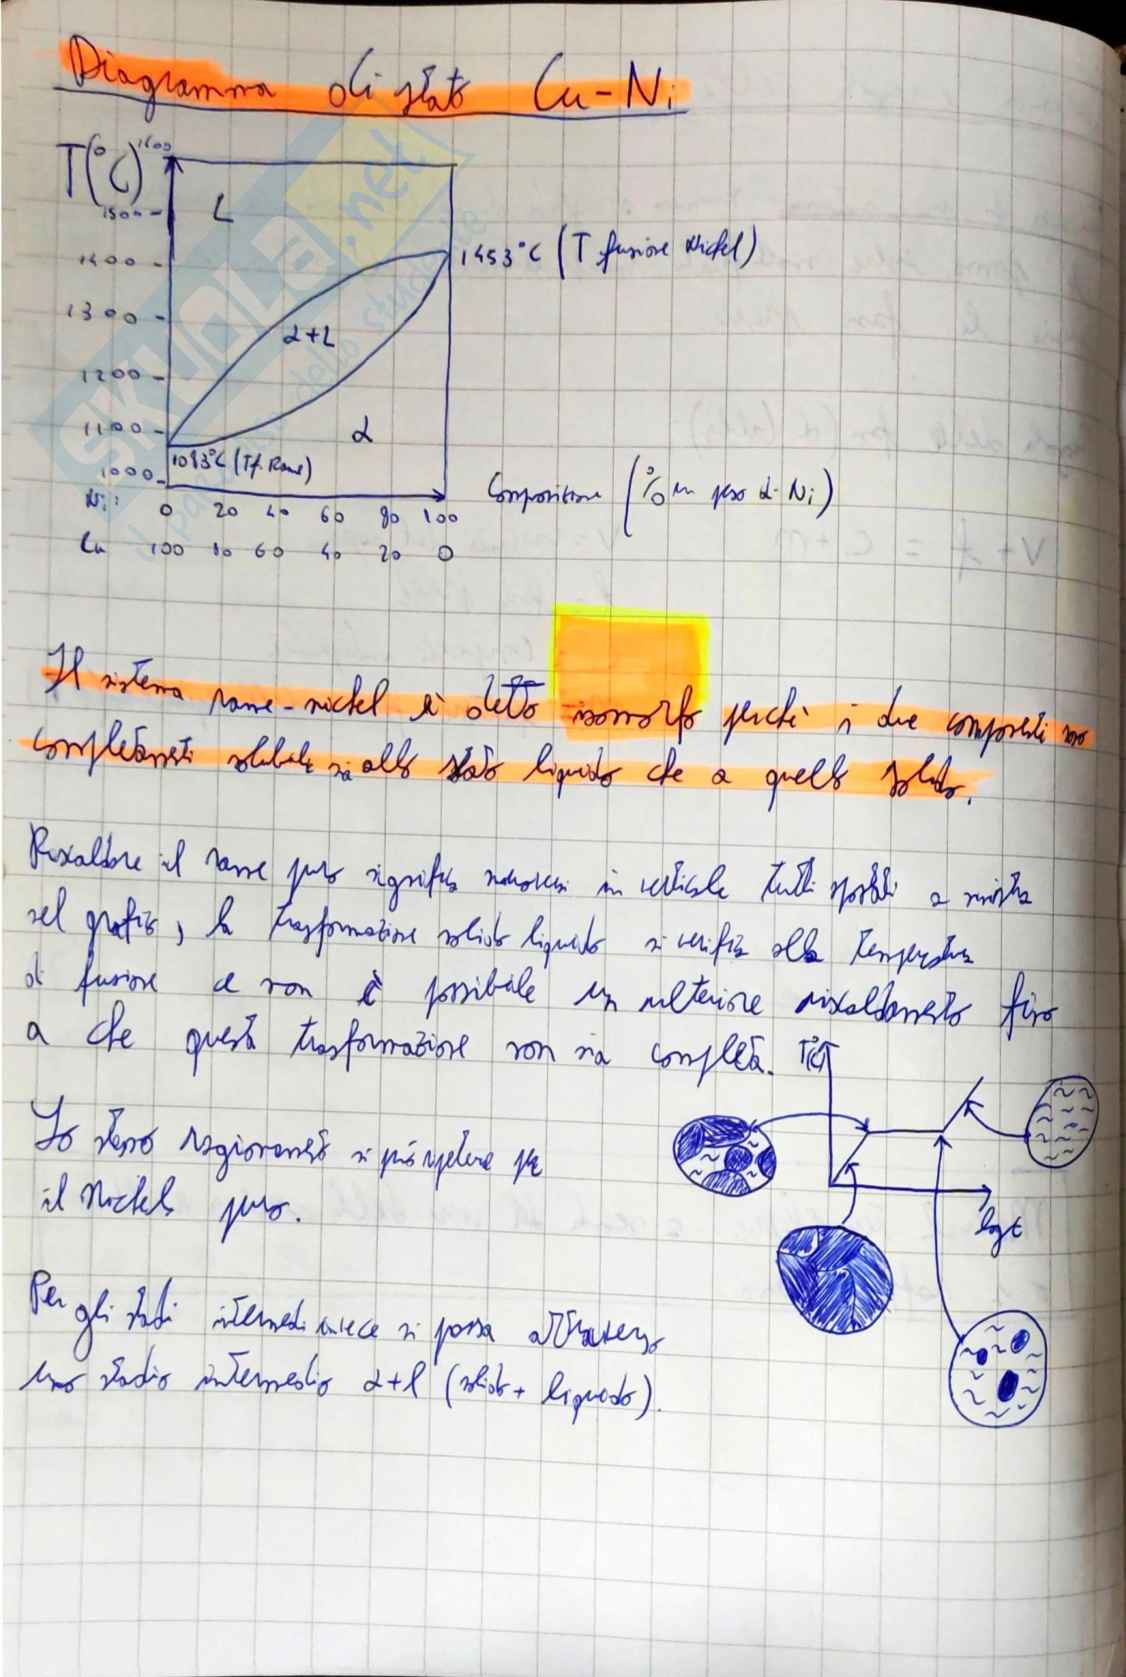 Diagramma di stato Cu-Ni
T(°C) 1600
1500
L
1400
1453°C (T fusione Nichel)
1300
α+L
1200
1100
α
1083°C (Tf. Rame)
1000
Composizione (% in peso di Ni)
Ni: 0 20 40 60 80 100
Cu 100 80 60 40 20 0
Il sistema rame-nichel è detto isomorfo perché i due componenti sono
completamente solubili sia allo stato liquido che a quello solido.
Riscaldare il rame puro significa muoversi in verticale tutti spostati a sinistra
nel grafico, la trasformazione solido liquido si verifica alla temperatura
di fusione e non è possibile un ulteriore riscaldamento fino
a che questa trasformazione non sia completa.
T(°C)
Lo stesso ragionamento si può ripetere per
il Nichel puro.
log t
Per gli stadi intermedi invece si passa attraverso
uno stadio intermedio α+l (solido + liquido).
SKUOLA.net